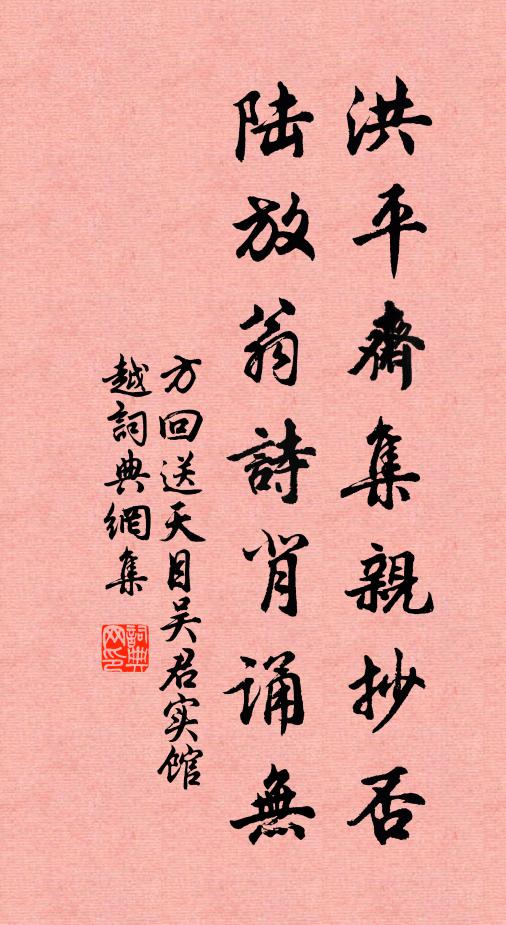 洪平齋集親抄否
陸放翁詩背誦無
方回送天目吴君实馆
越詞典網集
詞典网印